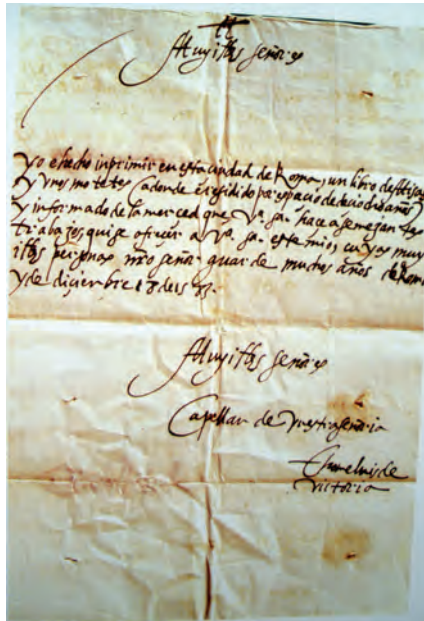 Muy illes señores
Yo e hecho inprimir en esta ciudad de Roma, un libro de Misas
y unos motetes (a donde e residido por espacio de deciocho años)
y informado de la merced que Vª. Sª. haçe a semejantes
trabajos, quise ofreçer a Vª. Sª. estos mios, cuyas muy
illes personas nro señor guarde muchos años de Roma
y de diçiembre 18 de 1583.
Muy illes señores
Capellan de vuestra señoria
Thome luis de
Victoria